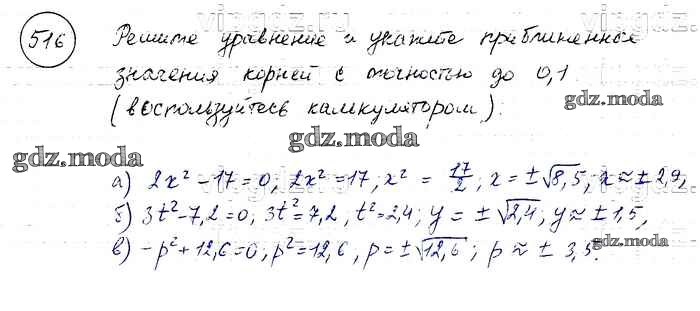 vipgdz.ru
516 Решите уравнение и укажите приближенные
значения корней с точностью до 0,1
gdz.moda
(воспользуйтесь калькулятором).
gdz.moda
gdz.moda
а) 2x² - 17 = 0, 2x² = 17, x² = 17/2; x = ±√8,5; x ≈ ± 2,9,
б) 3t² - 7,2 = 0, 3t² = 7,2, t² = 2,4; y = ±√2,4; y ≈ ± 1,5,
gdz.moda
в) -p² + 12,6 = 0, p² = 12,6, p = ±√12,6; p ≈ ± 3,5.